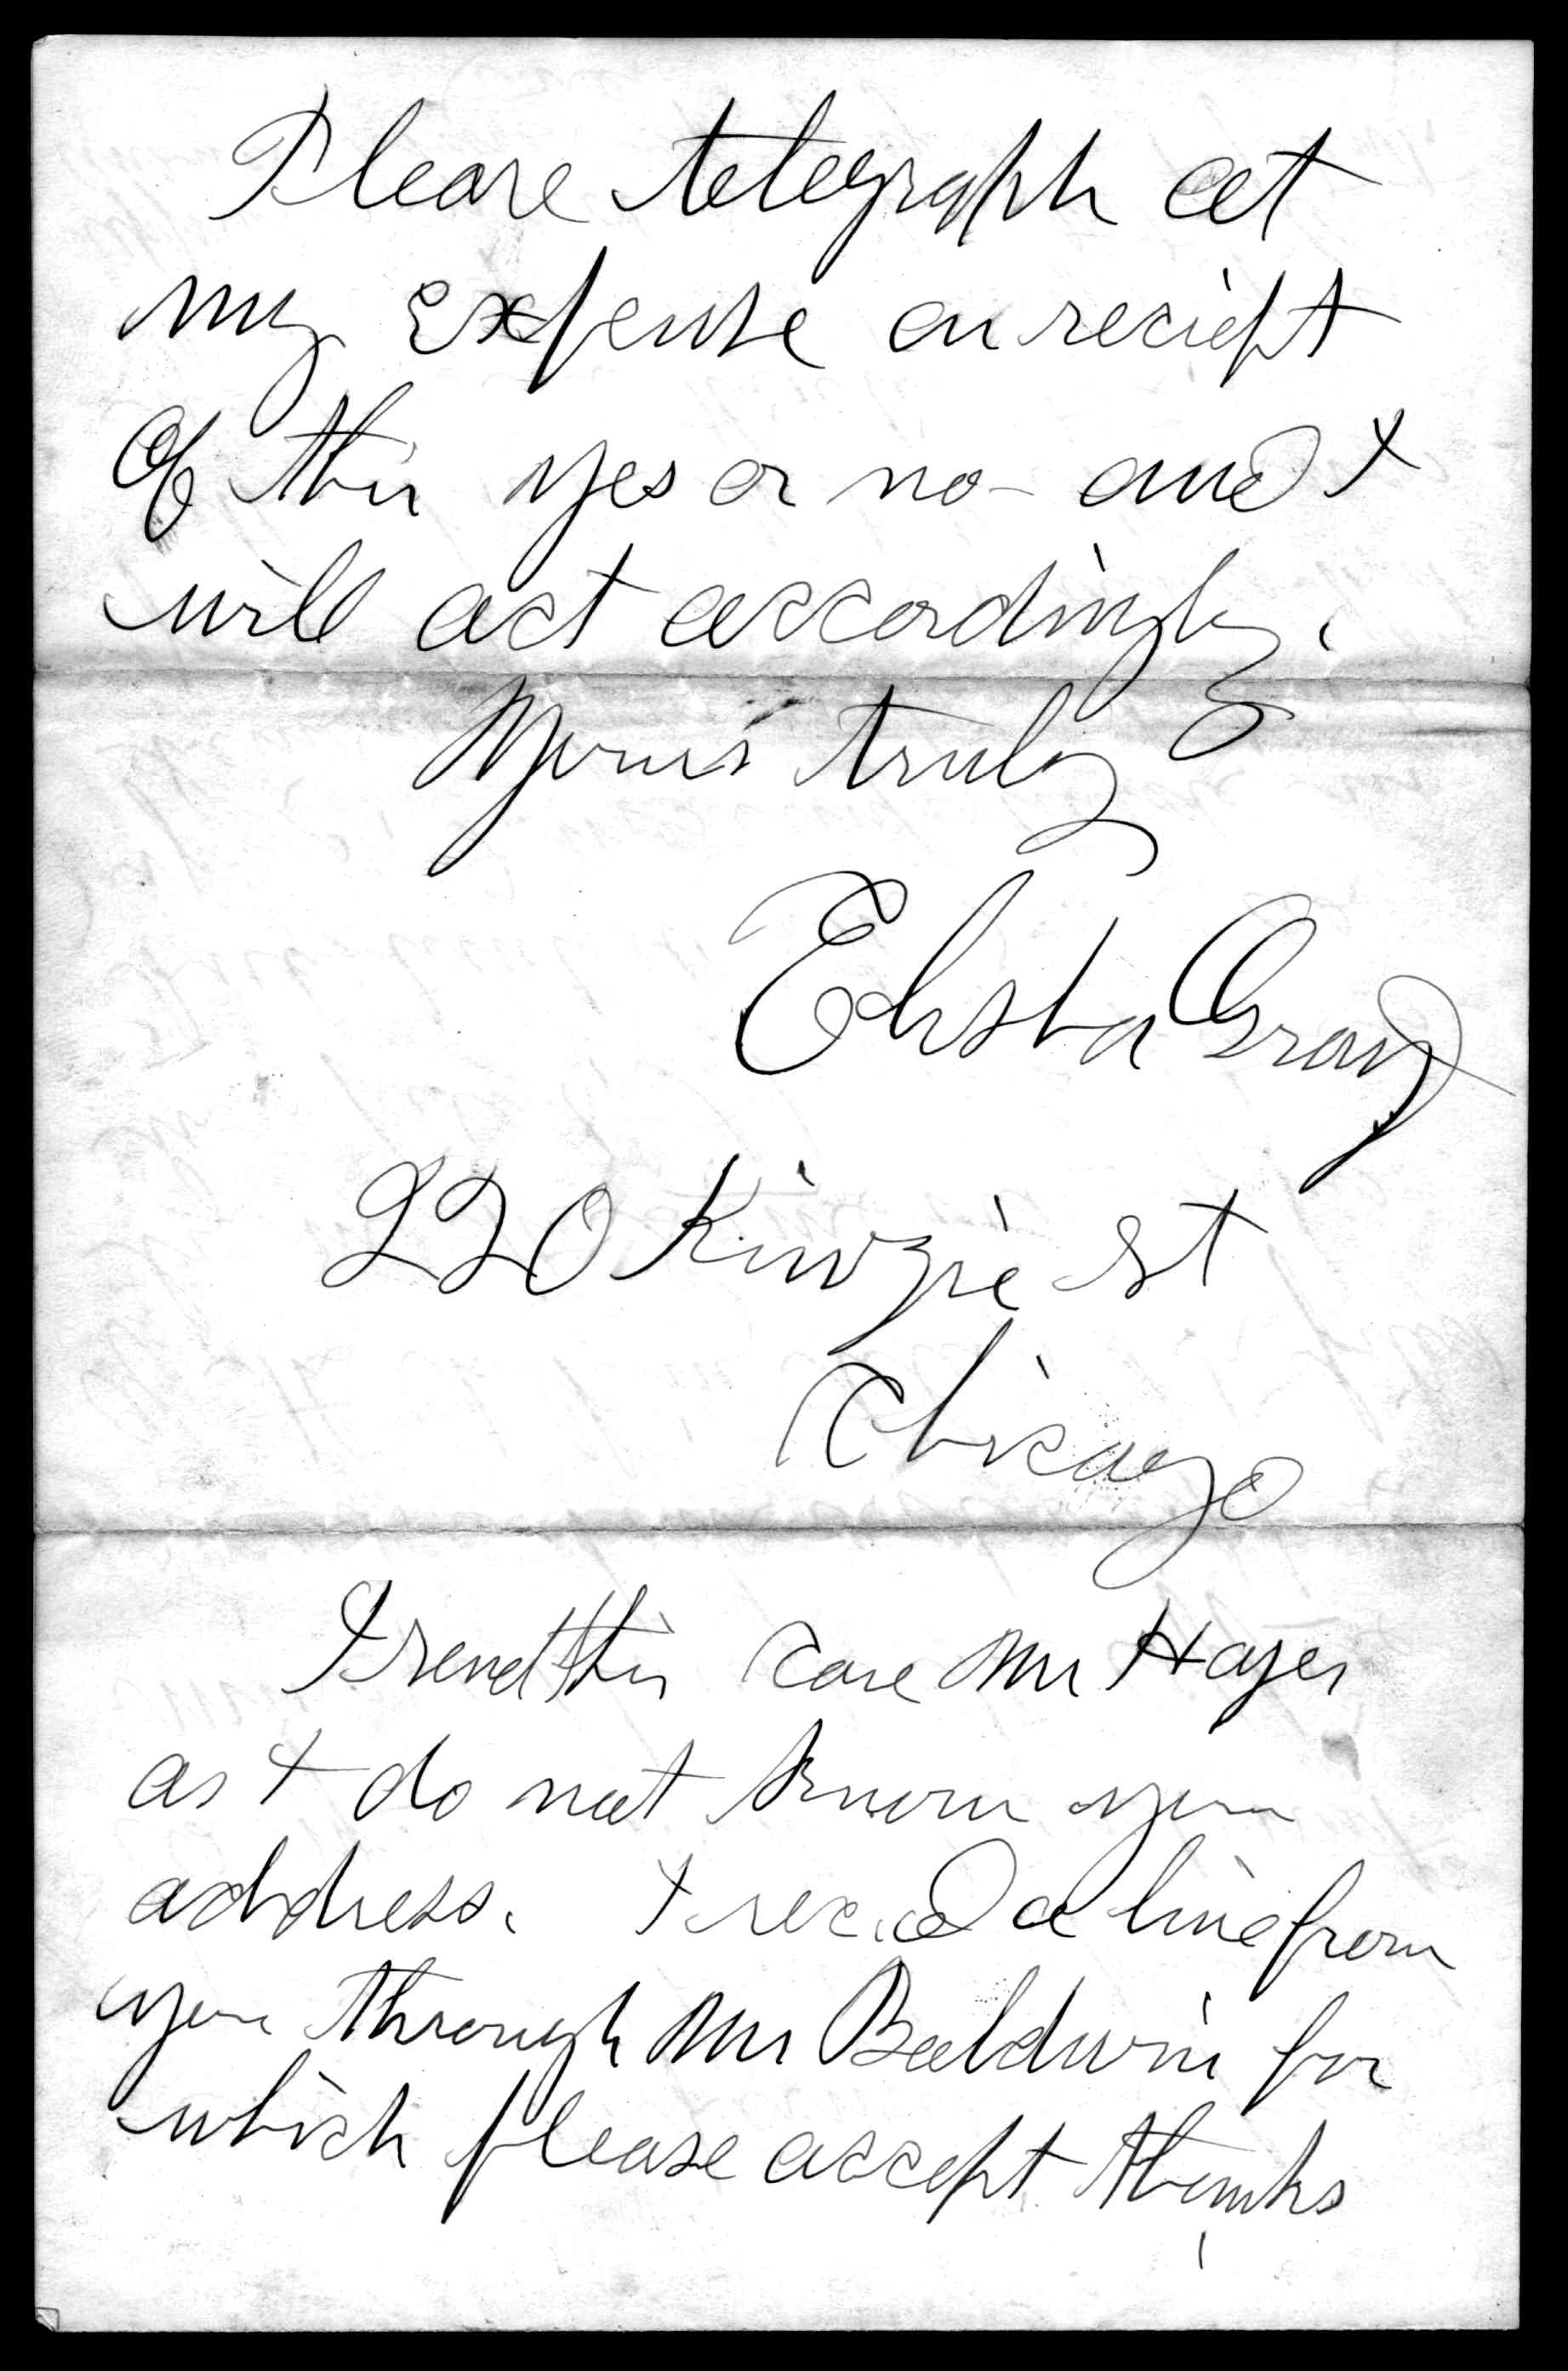 Please telegraph at
my expense on reciept
of this yes or no - and I
will act accordingly.
Yours truly
Elisha Gray
220 Kinzie st
Chicago
I send this care Mr Hayes
as I do not know your
address. I rec.ed a line from
you through Mr Baldwin for
which please accept thanks